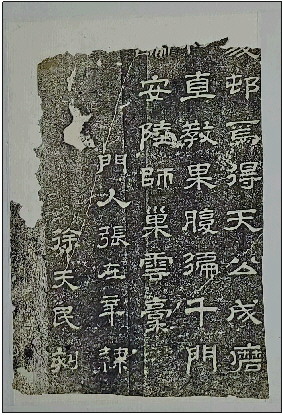 邨焉得天公成磨
直教果腹徧千門
安陸師巢雲稾
門人張在辛隸
徐天民刻